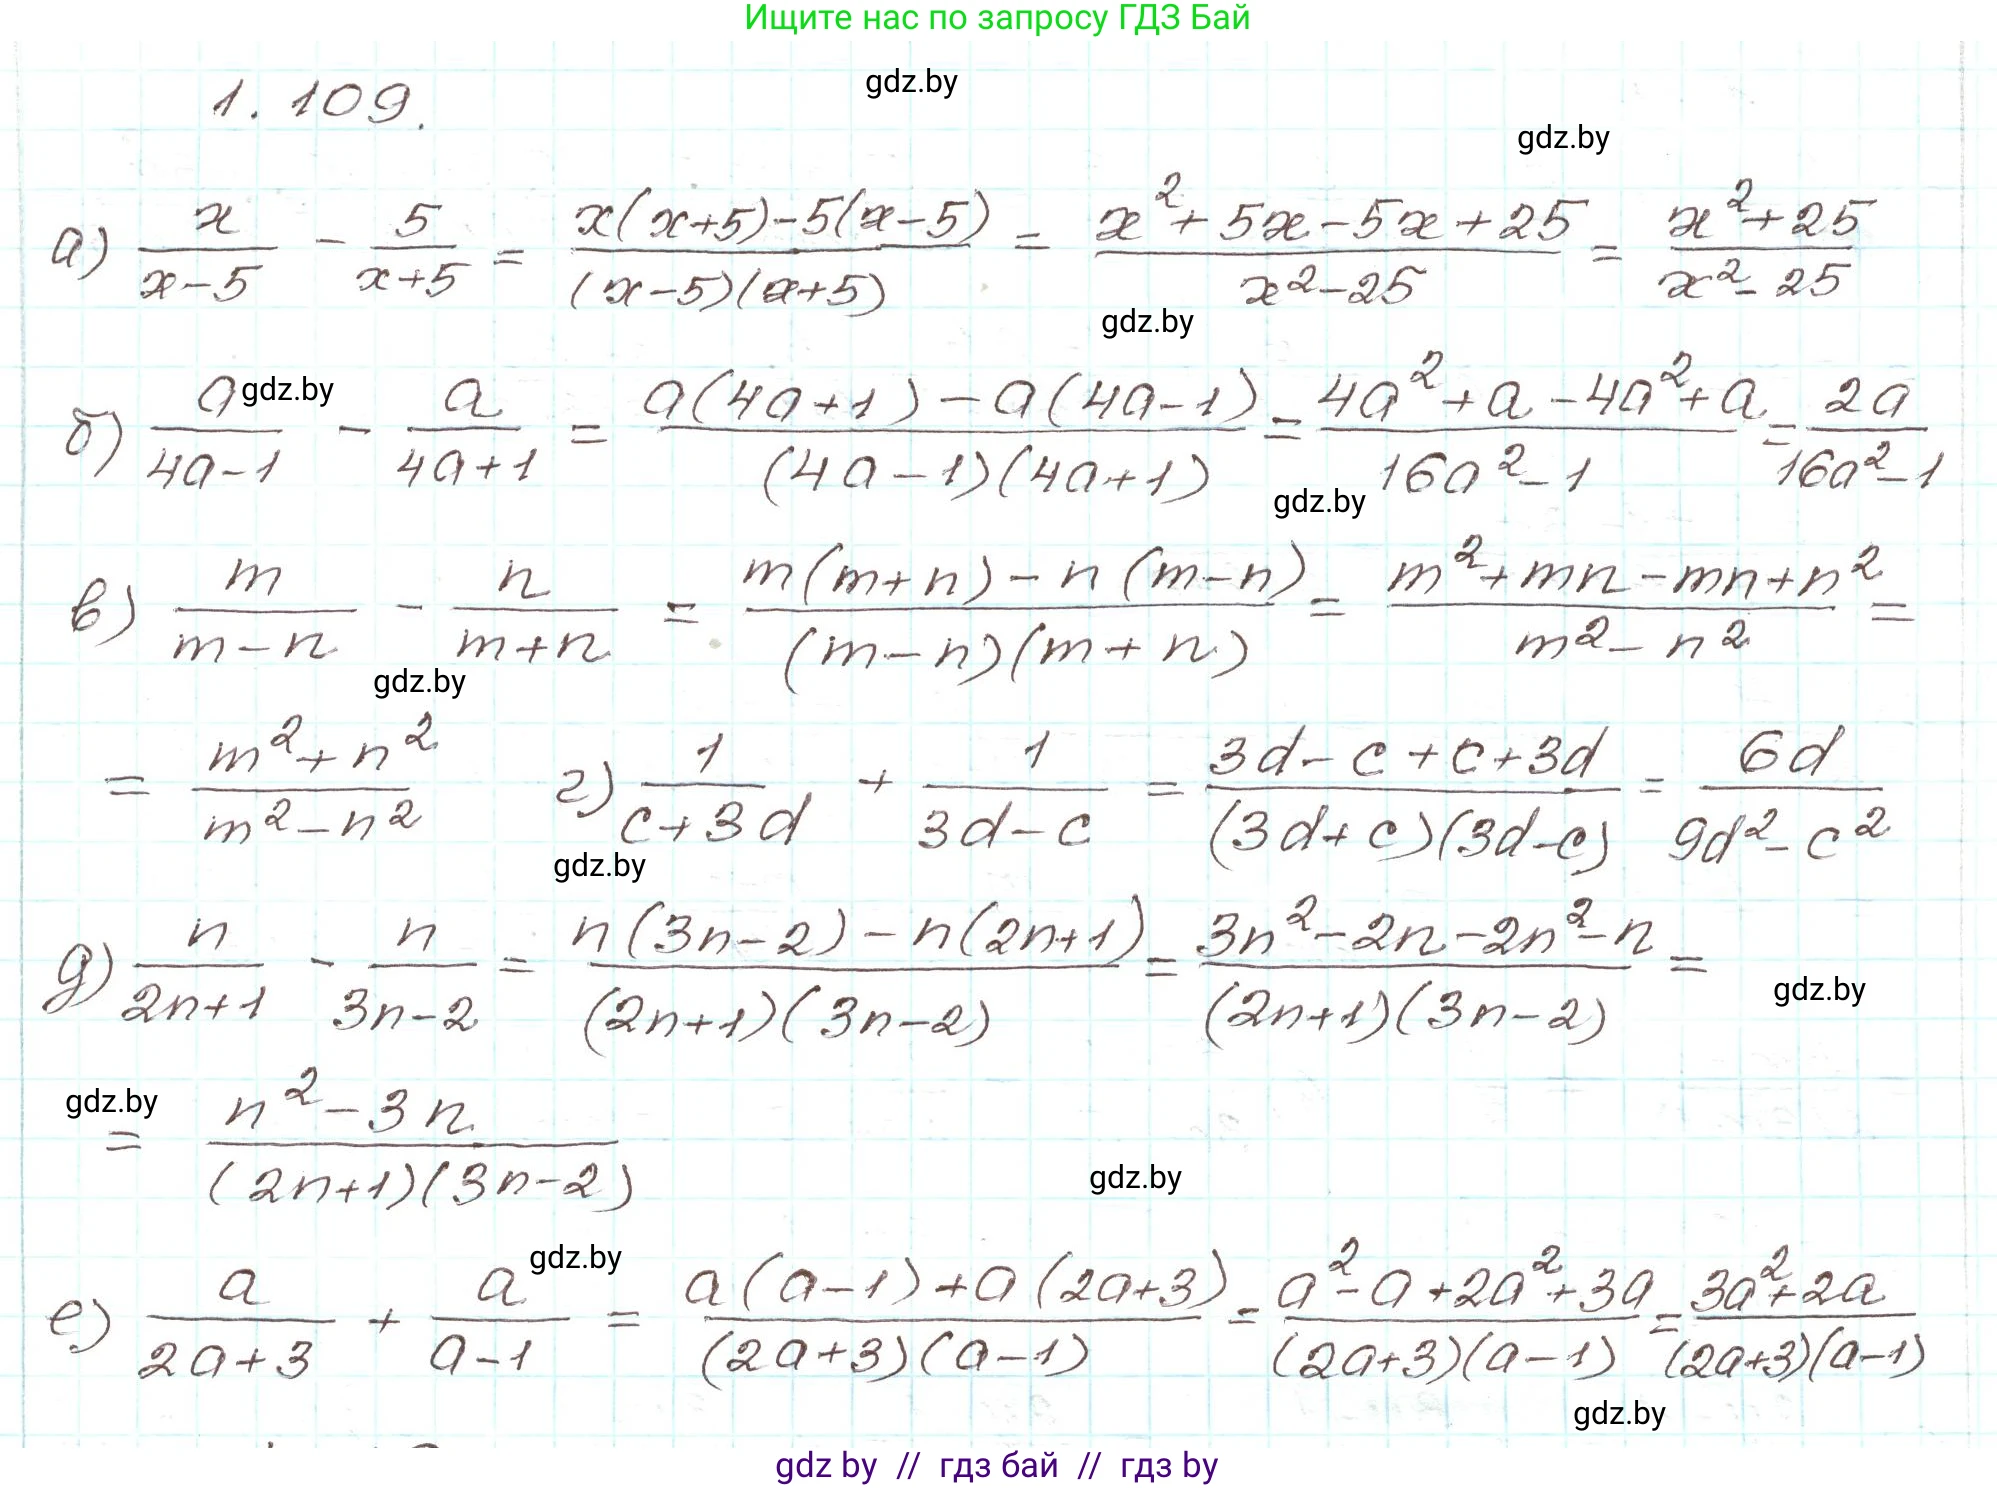 Ищите нас по запросу ГДЗ Бай
gdz.by
1.109.
gdz.by
а) x/(x-5) - 5/(x+5) = (x(x+5)-5(x-5))/((x-5)(x+5)) = (x²+5x-5x+25)/(x²-25) = (x²+25)/(x²-25)
gdz.by
gdz.by
б) a/(4a-1) - a/(4a+1) = (a(4a+1)-a(4a-1))/((4a-1)(4a+1)) = (4a²+a-4a²+a)/(16a²-1) = 2a/(16a²-1)
gdz.by
в) m/(m-n) - n/(m+n) = (m(m+n)-n(m-n))/((m-n)(m+n)) = (m²+mn-mn+n²)/(m²-n²) =
gdz.by
= (m²+n²)/(m²-n²) г) 1/(c+3d) + 1/(3d-c) = (3d-c+c+3d)/((3d+c)(3d-c)) = 6d/(9d²-c²)
gdz.by
д) n/(2n+1) - n/(3n-2) = (n(3n-2)-n(2n+1))/((2n+1)(3n-2)) = (3n²-2n-2n²-n)/((2n+1)(3n-2)) =
gdz.by
gdz.by
= (n²-3n)/((2n+1)(3n-2))
gdz.by
gdz.by
е) a/(2a+3) + a/(a-1) = (a(a-1)+a(2a+3))/((2a+3)(a-1)) = (a²-a+2a²+3a)/((2a+3)(a-1)) = (3a²+2a)/((2a+3)(a-1))
gdz.by
gdz by // гдз бай // гдз by